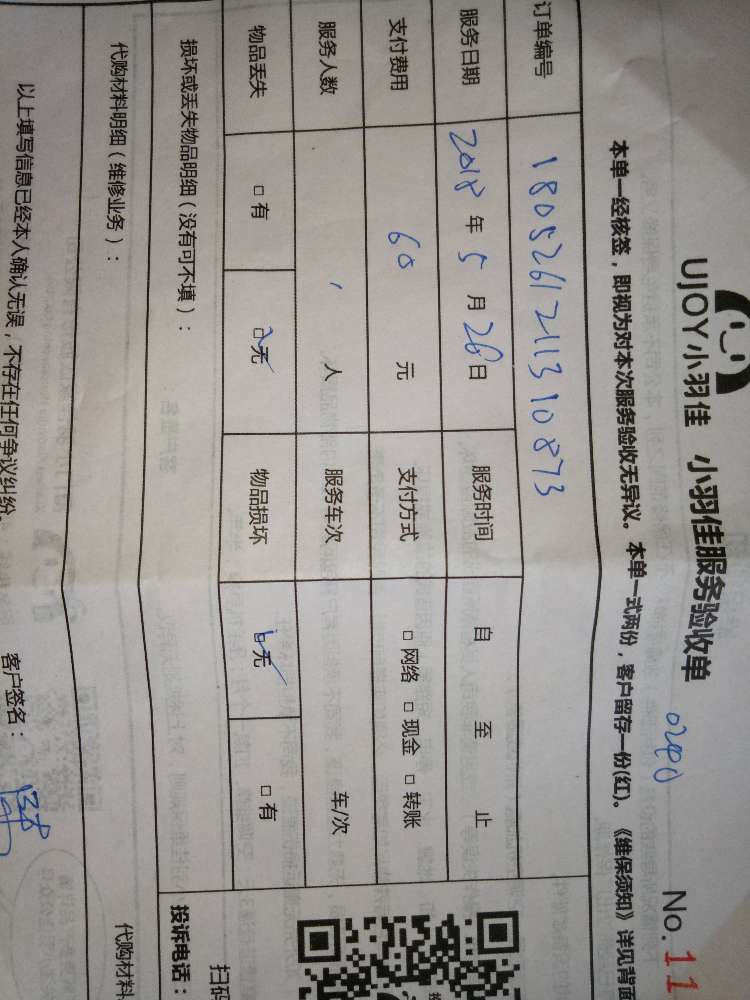 UJOY小羽佳 小羽佳服务验收单
0240
No. 11
本单一经核签，即视为对本次服务验收无异议。本单一式两份，客户留存一份(红)。《维保须知》详见背面
订单编号 180526121131 0873
服务日期 2018 年 5 月 26 日 服务时间 自 至 止
支付费用 60 元 支付方式 □ 网络 □ 现金 □ 转账
服务人数 人 服务车次 车/次
物品丢失 □ 有 □ 无 物品损坏 □ 无 □ 有
损坏或丢失物品明细（没有可不填）：
投诉电话：
扫码
代购材料明细（维修业务）：
代购材料
以上填写信息已经本人确认无误，不存在任何争议纠纷。 客户签名：